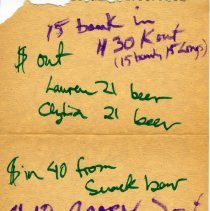 15 bank in
# 30 K out
(15 bank, 15 Longs)
$ out
Lauren 21 beer
21 beer
$ in 40 from
Snack bar